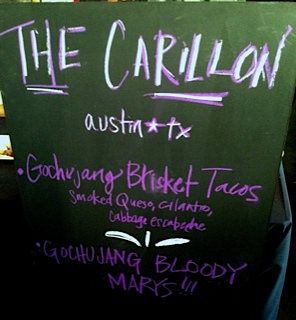 THE CARILLON
austin★tx
• Gochujang Brisket Tacos
Smoked Queso, Cilantro,
Cabbage escabeche
• GOCHUJANG BLOODY
MARYS!!!